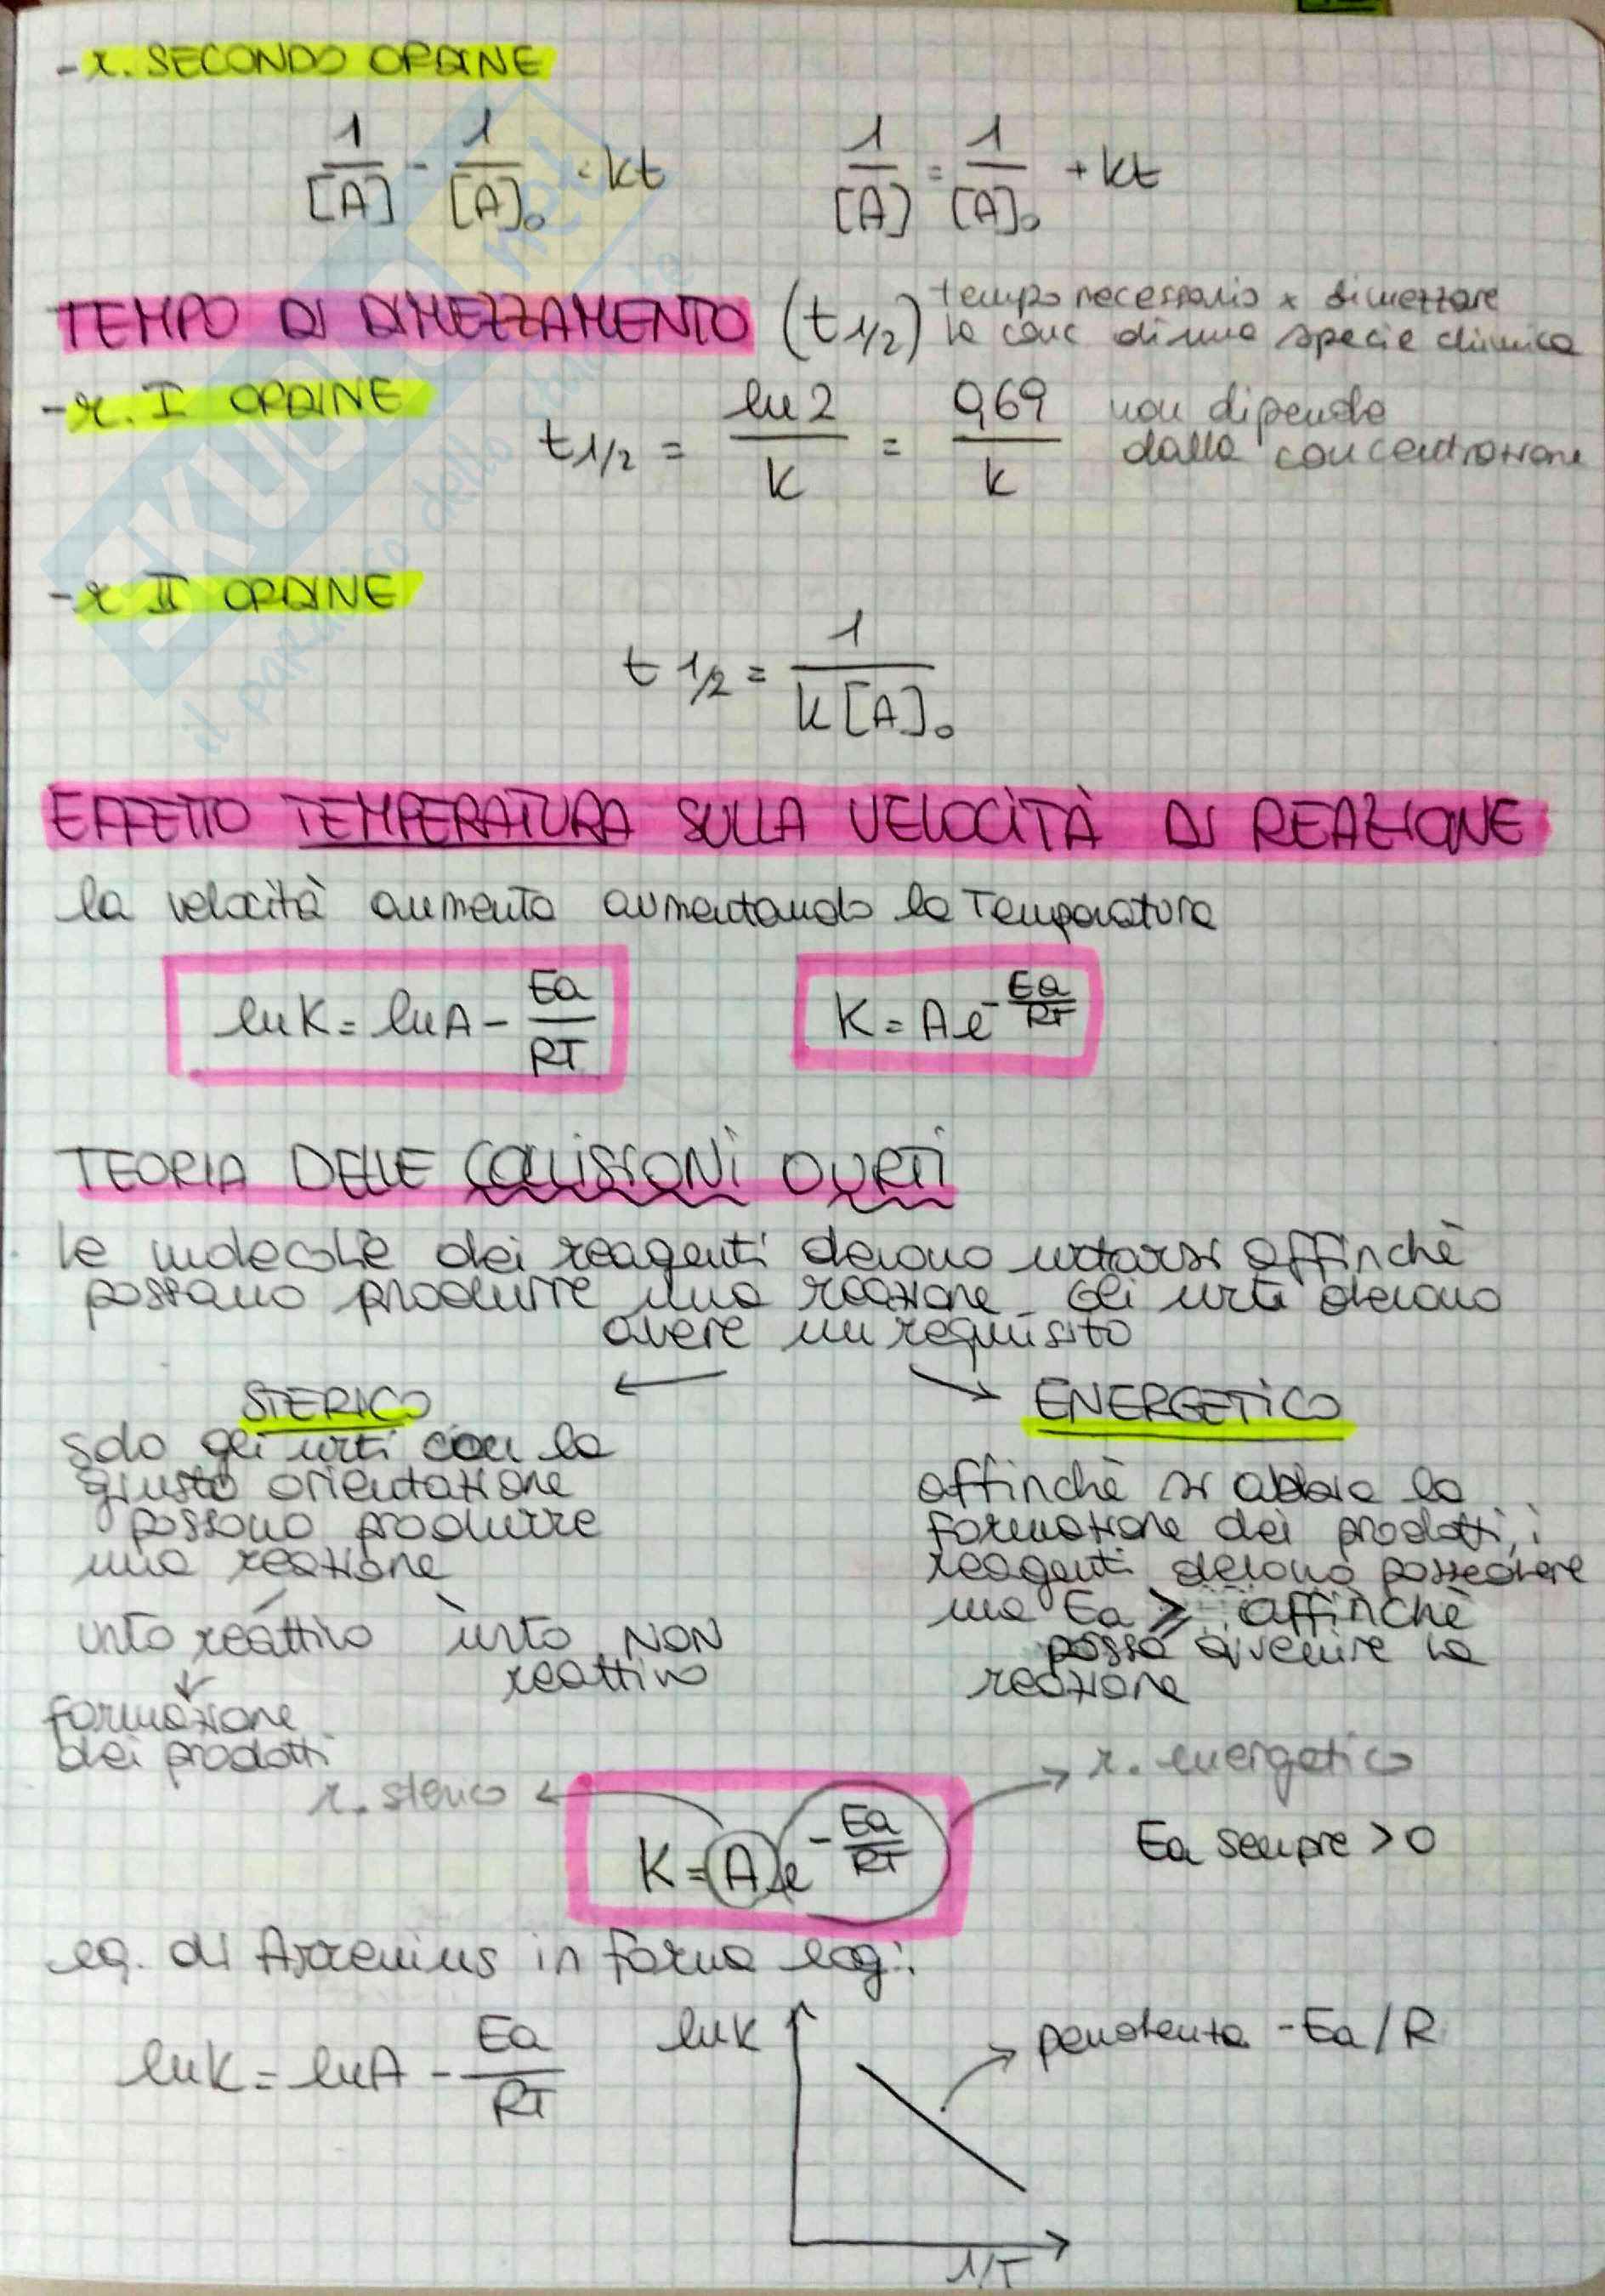 - r. SECONDO ORDINE
1/[A] - 1/[A]₀ = kt     1/[A] = 1/[A]₀ + kt
TEMPO DI DIMEZZAMENTO (t 1/2) tempo necessario x dimezzare
la conc di una specie chimica
- r. I ORDINE
t 1/2 = ln 2/k = 0,69/k non dipende
dalla concentrazione
- r II ORDINE
t 1/2 = 1/k[A]₀
EFFETTO TEMPERATURA SULLA VELOCITÀ DI REAZIONE
la velocità aumenta aumentando la Temperatura
ln K = ln A - Ea/RT     K = A e^-Ea/RT
TEORIA DELLE COLLISIONI O URTI
le molecole dei reagenti devono urtarsi affinchè
possano produrre una reazione. Gli urti devono
avere un requisito
STERICO
solo gli urti con la
giusta orientazione
possono produrre
una reazione
urto reattivo urto NON
reattivo
formazione
dei prodotti
ENERGETICO
affinchè si abbia la
formazione dei prodotti, i
reagenti devono possedere
una Ea ≥ affinchè
possa avvenire la
reazione
r. sterico
r. energetico
K = A e^-Ea/RT
Ea sempre > 0
eq. di Arrenius in forma log:
ln K = ln A - Ea/RT
ln K
pendenza -Ea/R
1/T
SKUOLA.net
il paradiso dello studente